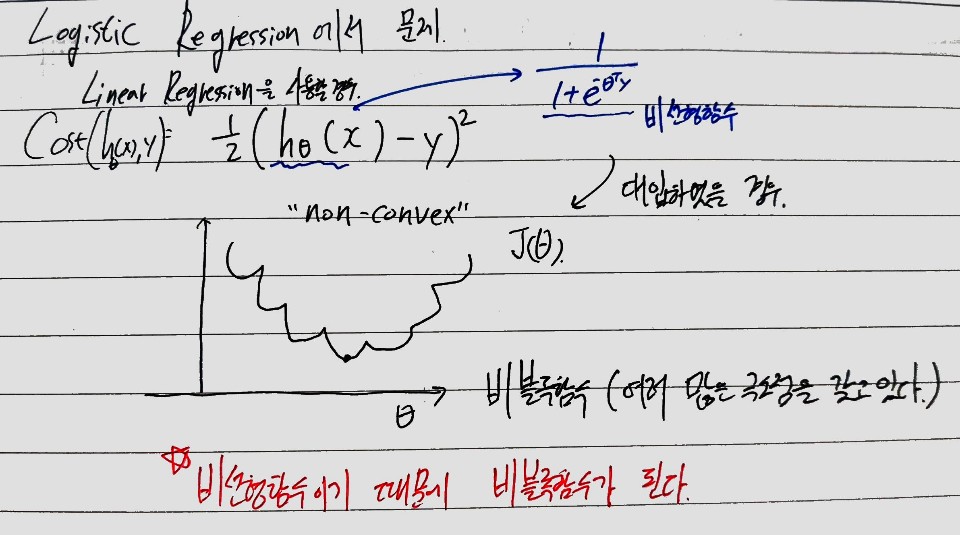 Logistic Regression에서 문제.
Linear Regression을 사용할 경우.
1/(1+e^-θᵀy)
비선형함수
Cost(hθ(x),y)= 1/2(hθ(x)-y)²
대입하였을 경우.
"non-convex"
J(θ).
θ
비볼록함수 (여러 많은 극소점을 갖고 있다.)
☆ 비선형함수이기 때문에 비볼록함수가 된다.